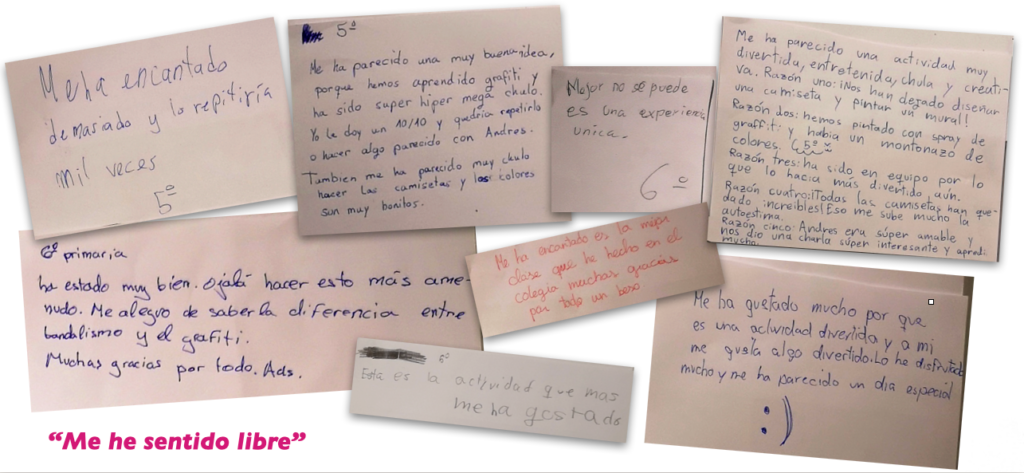 Me ha encantado
demasiado y lo repitiría
mil veces
5º
5º
Me ha parecido una muy buena idea,
porque hemos aprendido grafiti y
ha sido super hiper mega chulo.
Yo le doy un 10/10 y quedria repetirlo
o hacer algo parecido con Andres.
Tambien me ha parecido muy chulo
hacer las camisetas y los colores
son muy bonitos.
Mejor no se puede
es una experiencia
unica.
6º
Me ha parecido una actividad muy
divertida, entretenida, chula y creati-
va. Razón uno: ¡Nos han dejado diseñar
una camiseta y pintar un mural!
Razón dos: hemos pintado con spray de
graffiti y había un montonazo de
colores. 5º
Razón tres: ha sido en equipo por lo
que lo hacía más divertido, aún.
Razón cuatro: ¡Todas las camisetas han que-
dado increibles! Eso me sube mucho la
autoestima.
Razón cinco: Andres era súper amable y
nos dio una charla súper interesante y apredí
mucho.
6º primaria
ha estado muy bien. Ojalá hacer esto más ame-
nudo. Me alegro de saber la diferencia entre
bandalismo y el grafiti.
Muchas gracias por todo. Ads.
Me ha encantado es la mejor
clase que he hecho en el
colegio muchas gracias
por todo un beso
6º
Esta es la actividad que mas
me ha gostado
Me ha gustado mucho por que
es una actividad divertida y a mi
me gusta algo divertido. Lo he disfrutado
mucho y me ha parecido un dia especial
:)
“Me he sentido libre”